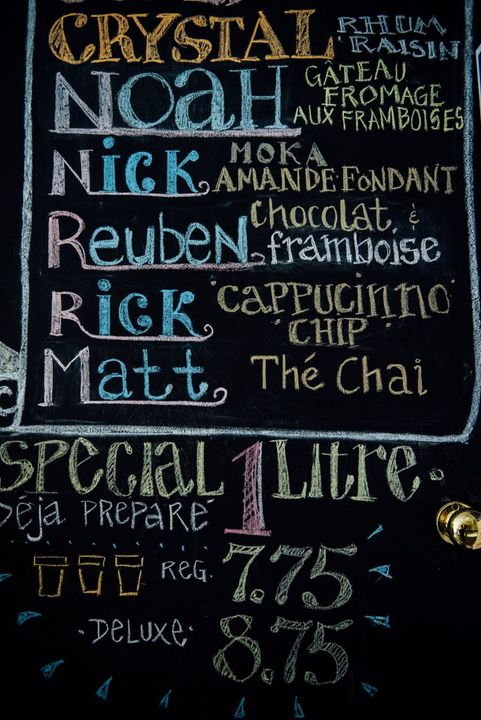 CRYSTAL RHUM RAISIN
NOAH GÂTEAU FROMAGE AUX FRAMBOISES
Nick MOKA AMANDE FONDANT
Reuben Chocolat & framboise
Rick "CAPPUCINNO CHIP"
Matt Thé Chai
SPECIAL 1 LITRE
DÉJA PREPARÉ
REG. 7.75
·DELUXE· 8.75